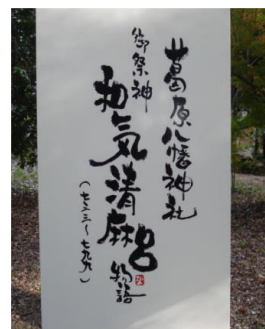 葛原八幡神社
御祭神
和気清麻呂物語
(七三三~七九九)